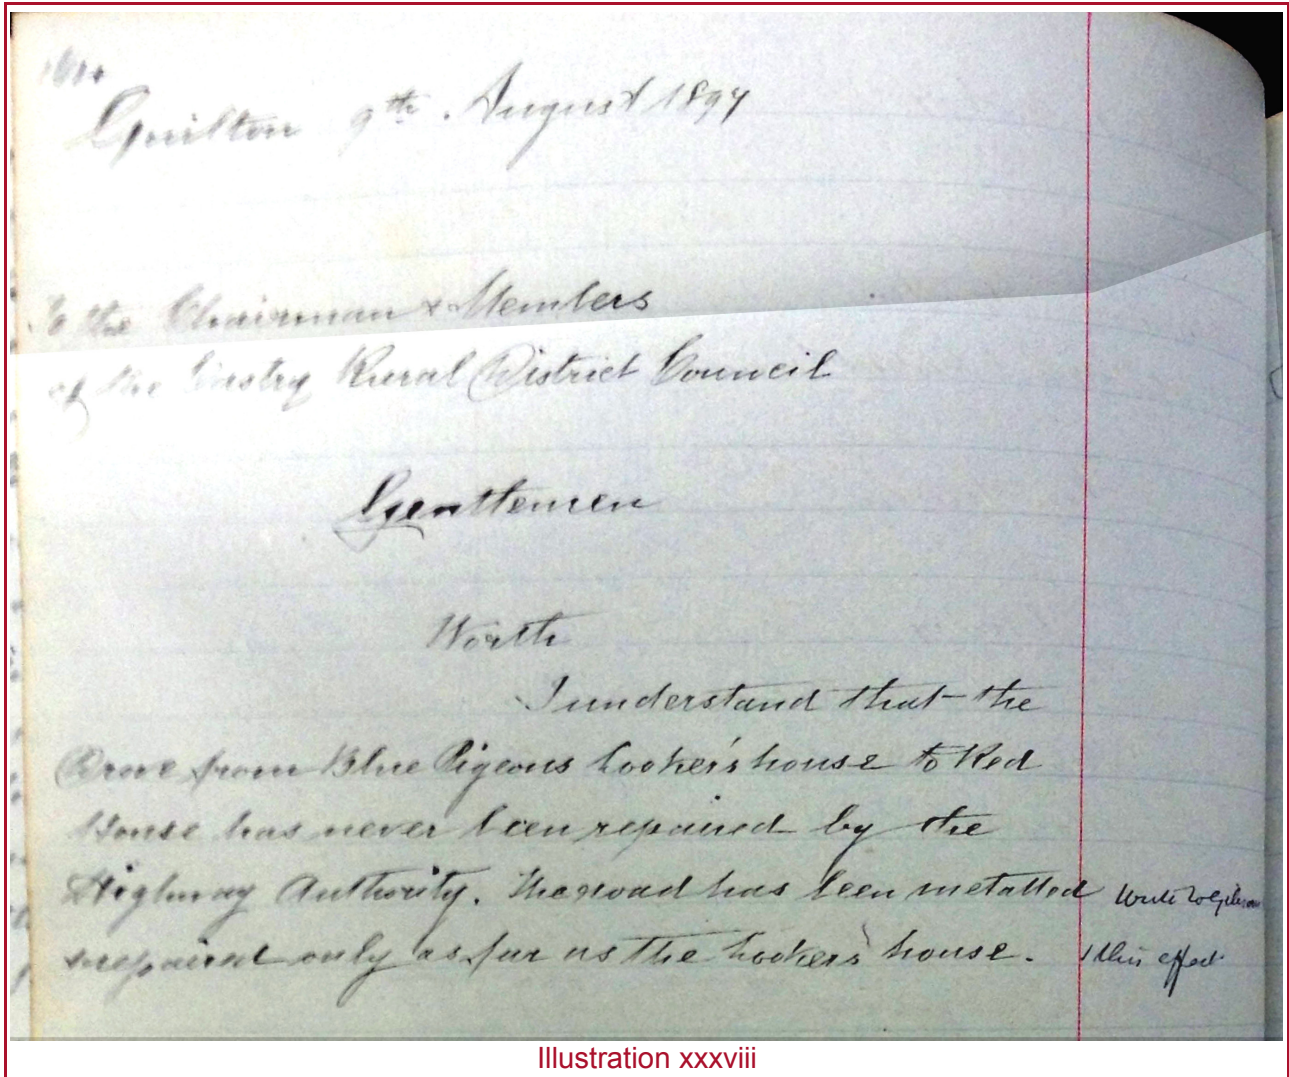 Guilton 9th. August 1897
To the Chairman & Members
of the Eastry Rural District Council
Gentlemen
Worth
I understand that the
Drove from Blue Pigeons Looker's house to Red
House has never been repaired by the
Highway Authority. The road has been metalled
& repaired only as far as the Looker's house.
Write to
this effect
Illustration xxxviii